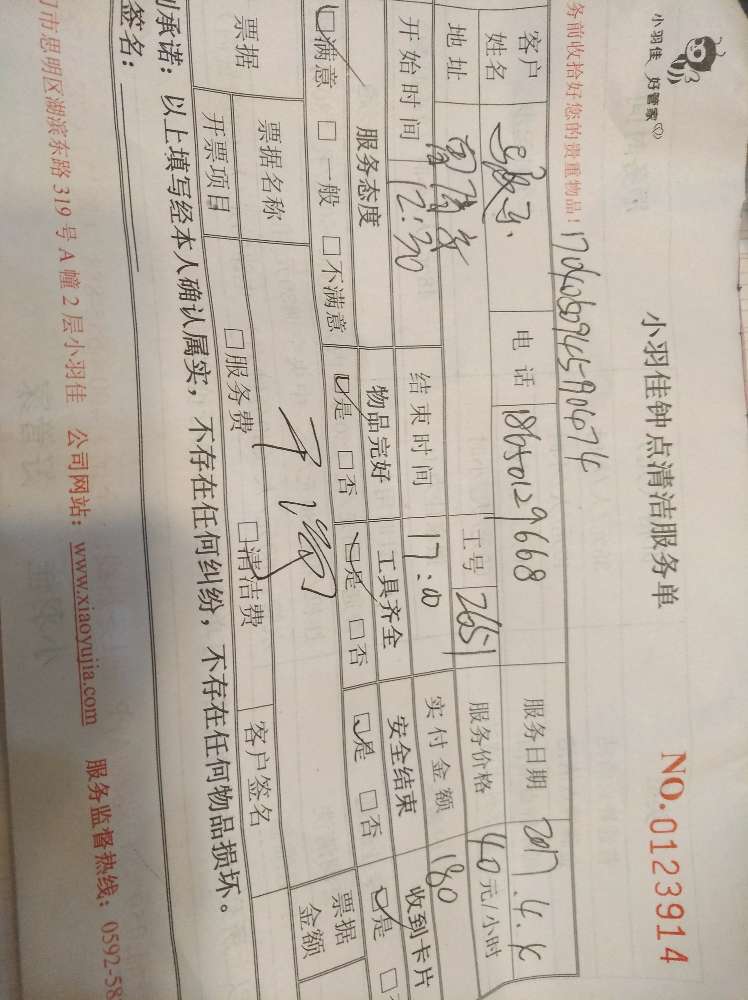 小羽佳 好管家
小羽佳钟点清洁服务单
NO.0123914
务前收拾好您的贵重物品!
客户姓名 电话 18650129668 服务日期 2017.4.
地址 工号 2651 服务价格 40元/小时
开始时间 12:30 结束时间 17:00 实付金额 180
服务态度 物品完好 工具齐全 安全结束 收到卡片
☑满意 □一般 □不满意 ☑是 □否 ☑是 □否 ☑是 □否 ☑是 □
票据 票据名称 票据金额
开票项目 □服务费 □清洁费 客户签名
承诺:以上填写经本人确认属实,不存在任何纠纷,不存在任何物品损坏。
签名:
门市思明区湖滨东路319号A幢2层小羽佳 公司网站:www.xiaoyujia.com 服务监督热线:0592-58